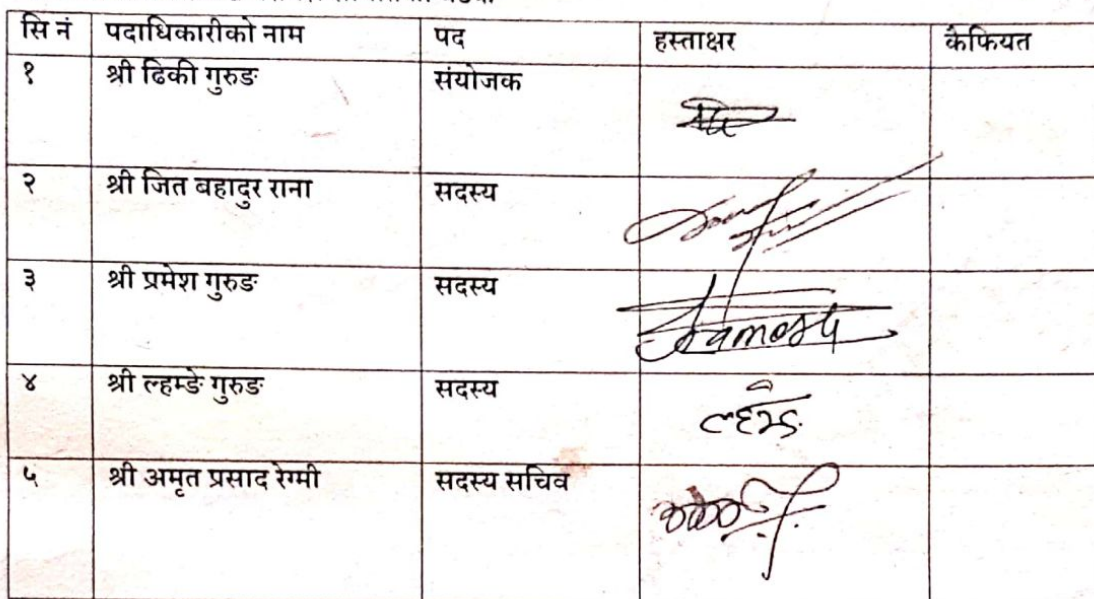 सि नं पदाधिकारीको नाम पद हस्ताक्षर कैफियत
१ श्री ढिकी गुरुङ संयोजक
२ श्री जित बहादुर राना सदस्य
३ श्री प्रमेश गुरुङ सदस्य
४ श्री ल्हम्ङे गुरुङ सदस्य
५ श्री अमृत प्रसाद रेग्मी सदस्य सचिव